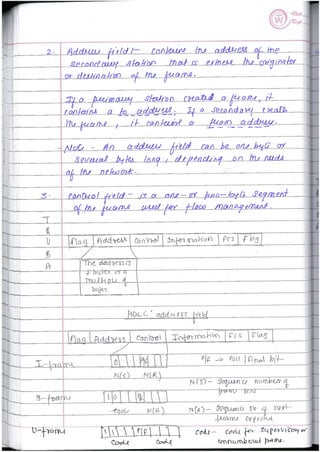 2. Address field :- contains the address of the
secondary station that is either the originator
or destination of the frame.
If a primary station created a frame, it
contains a to address. If a secondary creats
the frame, it contains a from address.
Note - An address field can be one byte or
several bytes long, depending on the needs
of the network.
3. Control field - is a one- or two-byte segment
of the frame used for flow management.
Flag Address Control Information FCS Flag
The address is
1 byte or a
multiple of
bytes
HDLC address field
Flag Address Control Information FCS Flag
I-frame 0 P/F P/F → Poll / Final bit-
N(S) N(R) N(S)- Sequence number of
frame sent
S-frame 1 0 P/F
Code N(R) N(R)- Sequence no of next-
frame expected
U-frame 1 1 P/F Code- Code for supervisory or
Code Code unnumbered frame.